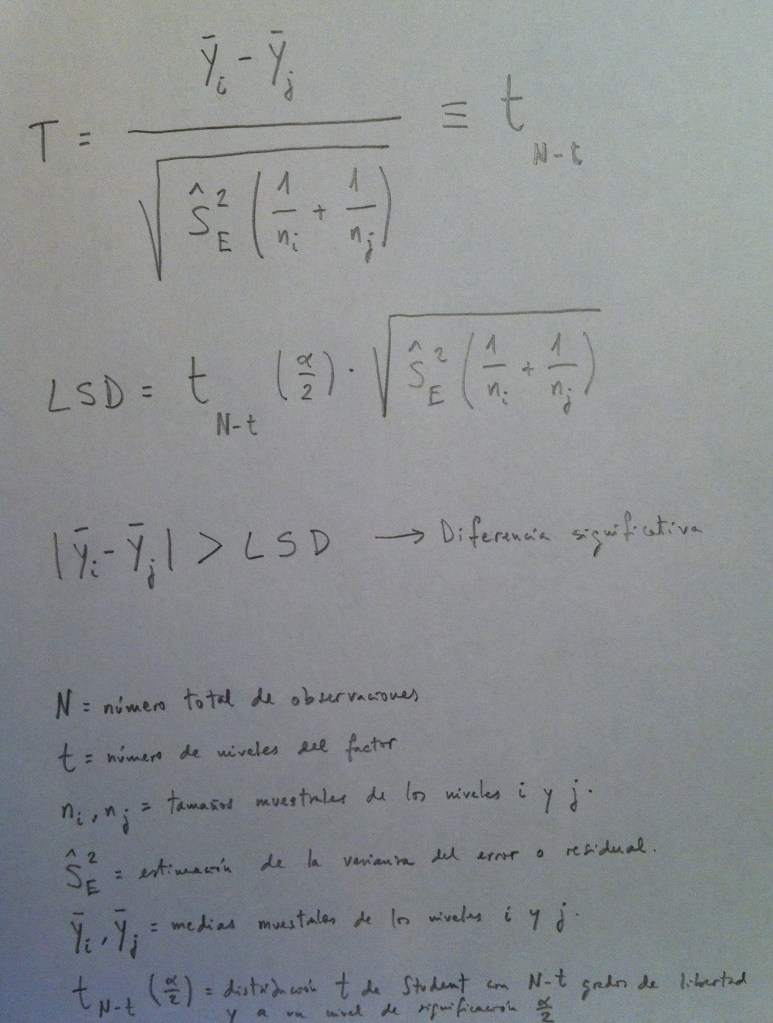 T = (ȳᵢ - ȳⱼ) / √(Ŝ²_E (1/nᵢ + 1/nⱼ)) ≡ t_{N-t}
LSD = t_{N-t} (α/2) · √(Ŝ²_E (1/nᵢ + 1/nⱼ))
|ȳᵢ - ȳⱼ| > LSD → Diferencia significativa
N = número total de observaciones
t = número de niveles del factor
nᵢ, nⱼ = tamaños muestrales de los niveles i y j.
Ŝ²_E = estimación de la varianza del error o residual.
ȳᵢ, ȳⱼ = medias muestrales de los niveles i y j.
t_{N-t} (α/2) = distribución t de Student con N-t grados de libertad
y a un nivel de significación α/2